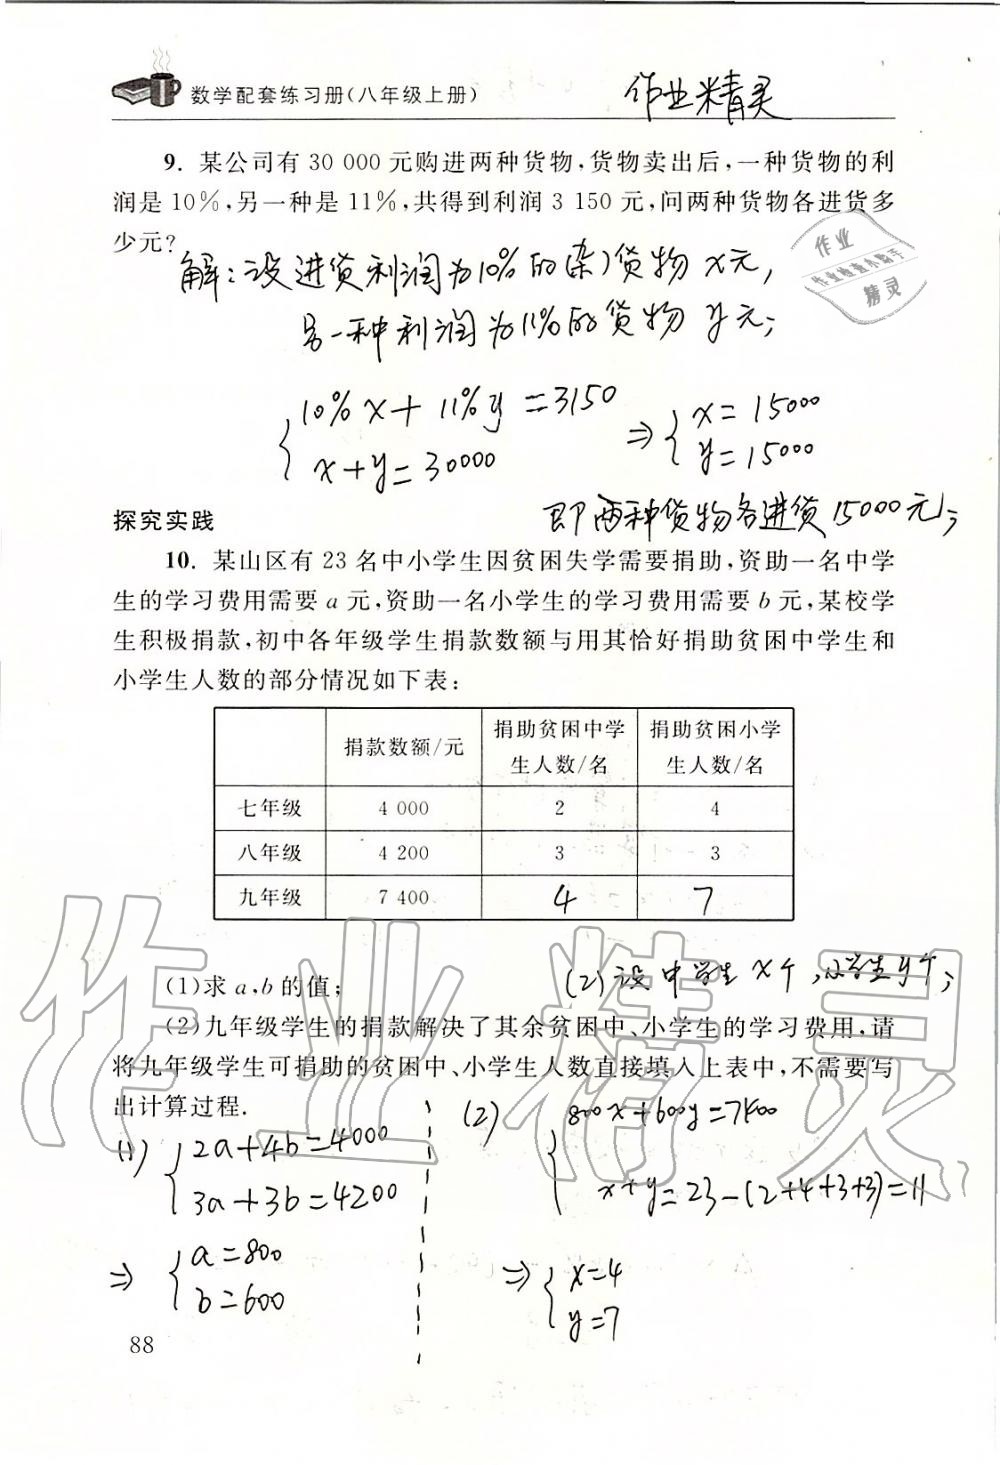 数学配套练习册(八年级上册)
作业精灵
9. 某公司有 30 000 元购进两种货物,货物卖出后,一种货物的利
润是 10%,另一种是 11%,共得到利润 3 150 元,问两种货物各进货多
少元?
作业
精灵
解:设进货利润为10%的 货物 x元,
另一种利润为11%的货物 y元;
10% x + 11% y = 3150
x + y = 30000
⇒ x = 15000
y = 15000
即两种货物各进货15000元;
探究实践
10. 某山区有 23 名中小学生因贫困失学需要捐助,资助一名中学
生的学习费用需要 a 元,资助一名小学生的学习费用需要 b 元,某校学
生积极捐款,初中各年级学生捐款数额与用其恰好捐助贫困中学生和
小学生人数的部分情况如下表:
捐款数额/元
捐助贫困中学
生人数/名
捐助贫困小学
生人数/名
七年级 4 000 2 4
八年级 4 200 3 3
九年级 7 400 4 7
(1)求 a,b 的值;
(2)设中学生 x个,小学生y个;
(2)九年级学生的捐款解决了其余贫困中、小学生的学习费用,请
将九年级学生可捐助的贫困中、小学生人数直接填入上表中,不需要写
出计算过程.
(1) 2a+4b=4000
3a+3b=4200
⇒ a=800
b=600
(2) 800x+600y=7400
x+y=23-(2+4+3+3)=11
⇒ x=4
y=7
作业精灵
88